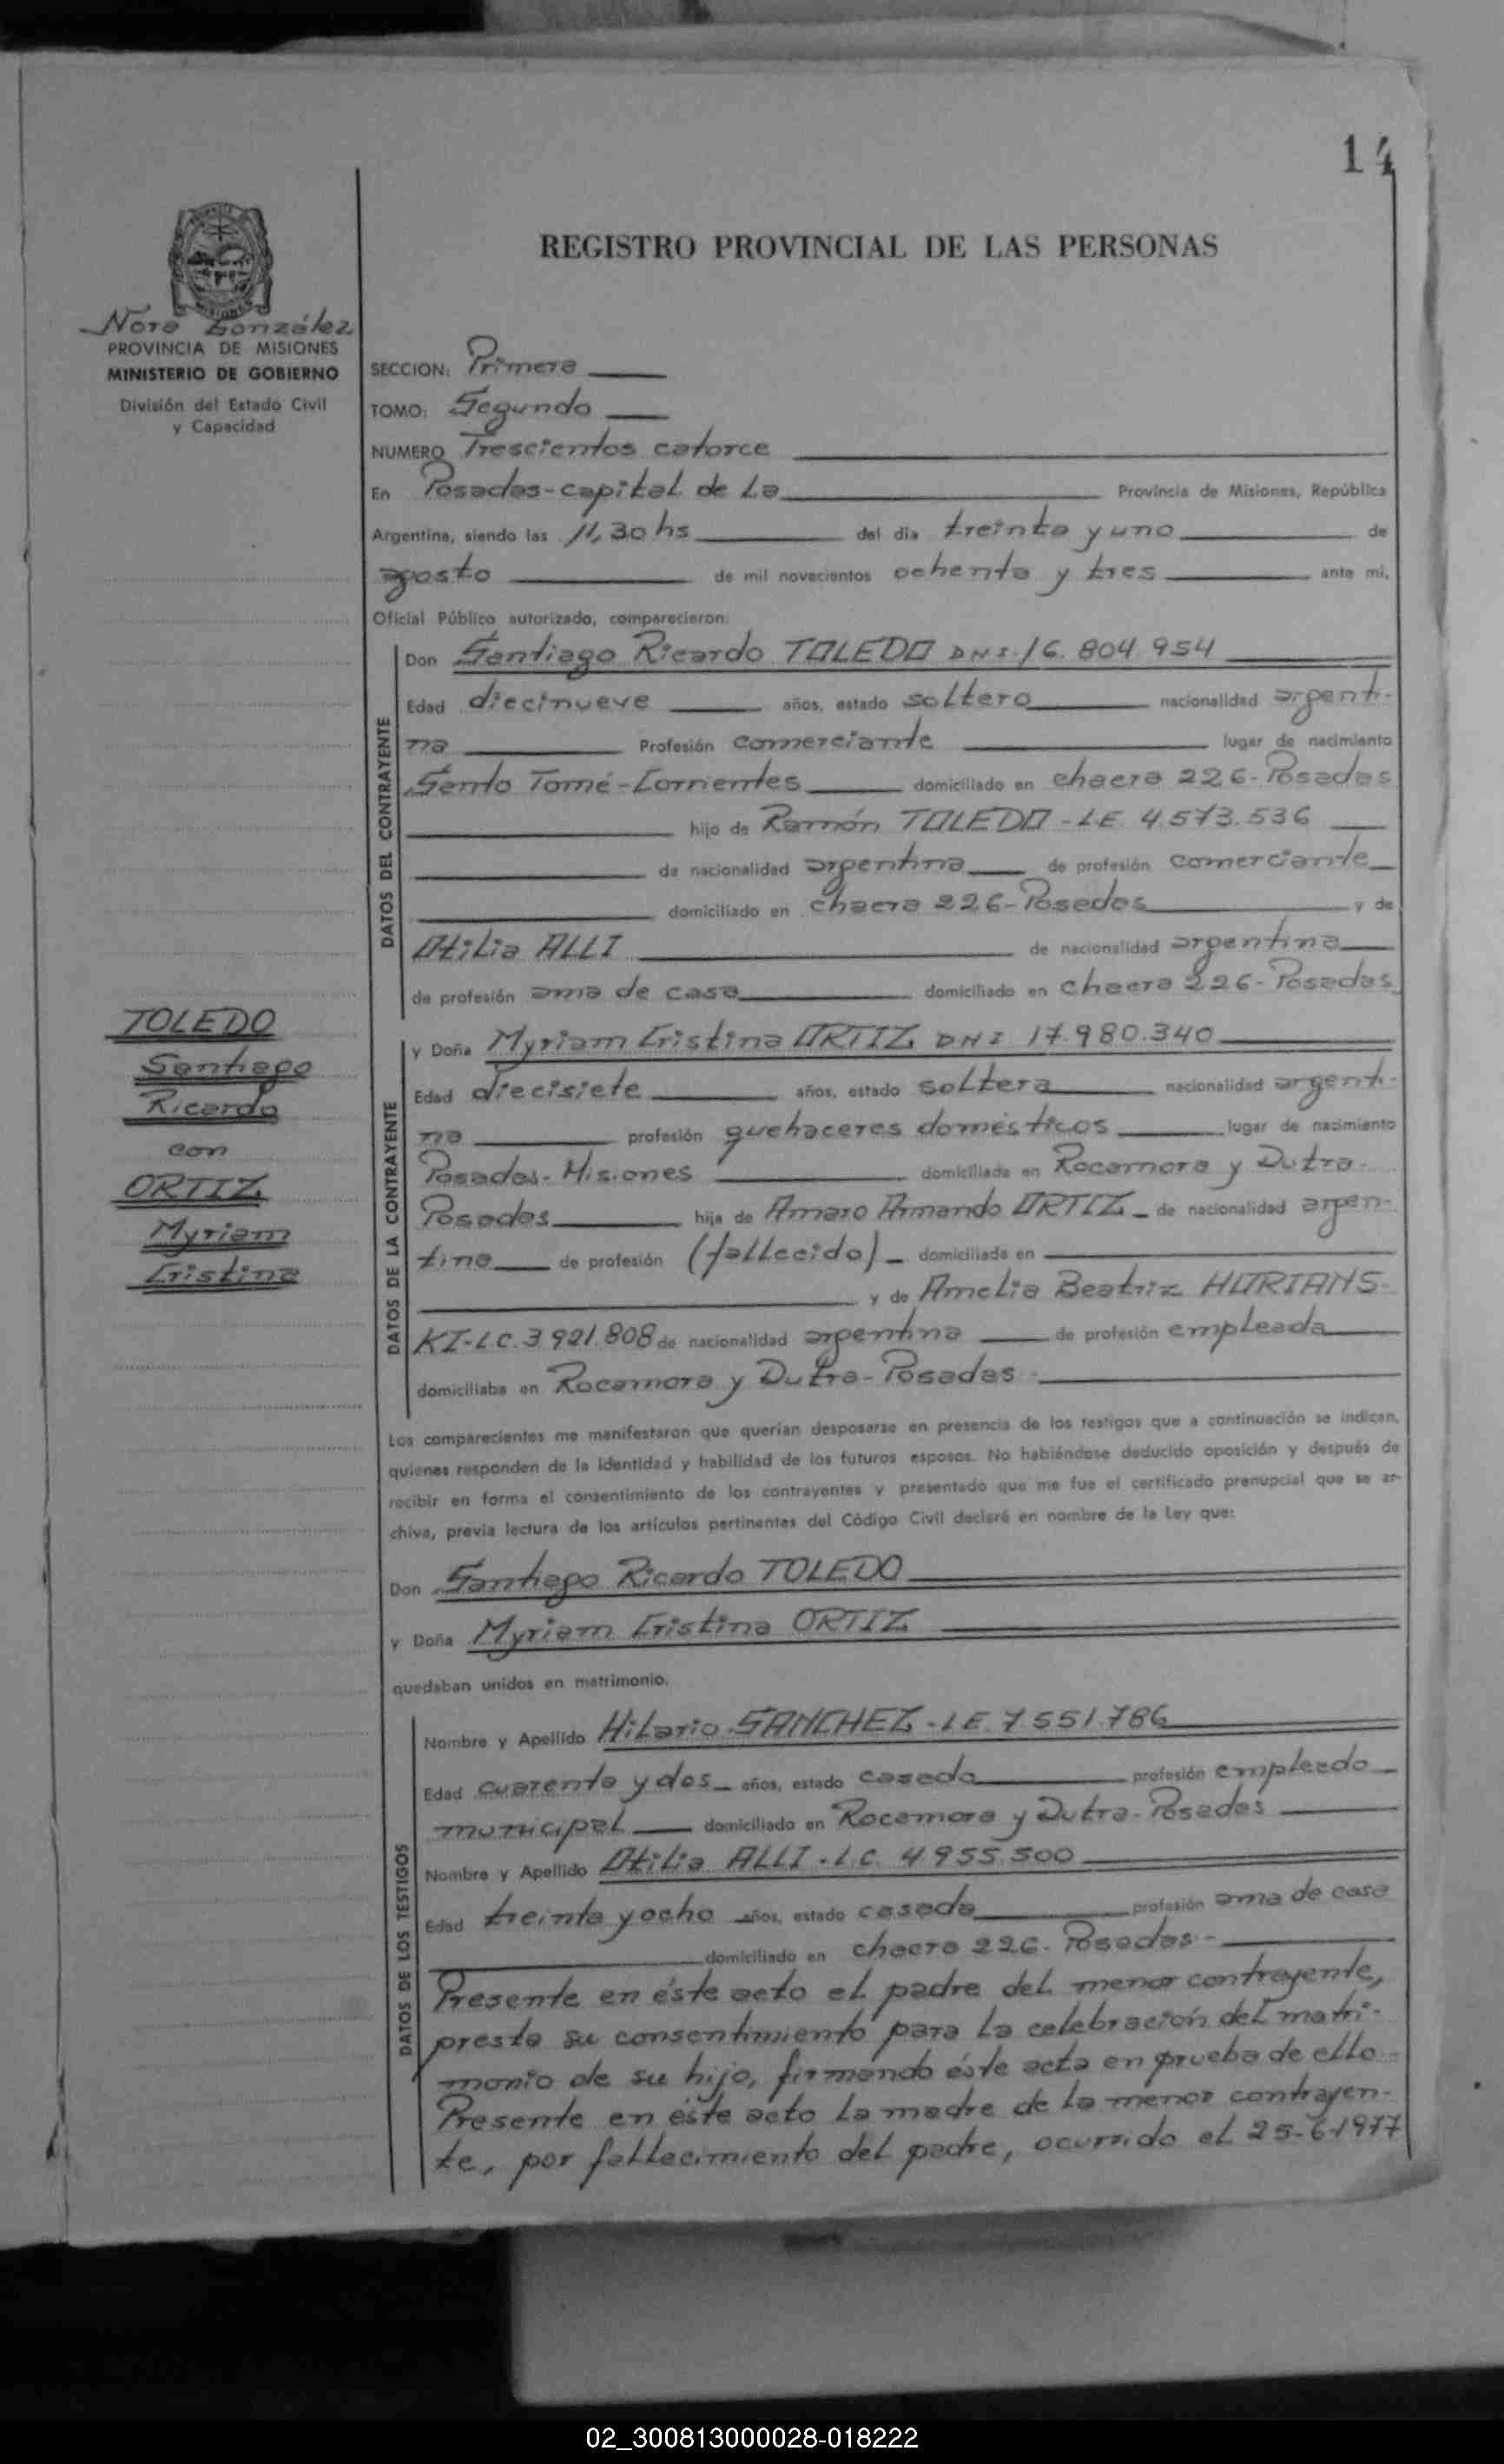 14
REGISTRO PROVINCIAL DE LAS PERSONAS
Nora González
PROVINCIA DE MISIONES
MINISTERIO DE GOBIERNO
División del Estado Civil
y Capacidad
SECCION: Primera
TOMO: Segundo
NUMERO Trescientos catorce
En Posadas-capital de la Provincia de Misiones, República
Argentina, siendo las 11,30 hs del dia treinta y uno de
agosto de mil novecientos ochenta y tres ante mi,
Oficial Público autorizado, comparecieron:
DATOS DEL CONTRAYENTE
Don Santiago Ricardo TOLEDO DNI. 16.804.954
Edad diecinueve años, estado soltero nacionalidad argenti-
na Profesión comerciante lugar de nacimiento
Santo Tomé-Corrientes domiciliado en chacra 226-Posadas
hijo de Ramón TOLEDO - LE. 4.573.536
de nacionalidad argentina de profesión comerciante
domiciliado en chacra 226-Posadas y de
Otilia ALLI de nacionalidad argentina
de profesión ama de casa domiciliado en chacra 226-Posadas
TOLEDO
Santiago
Ricardo
con
ORTIZ
Myriam
Cristina
DATOS DE LA CONTRAYENTE
y Doña Myriam Cristina ORTIZ DNI 17.980.340
Edad diecisiete años, estado soltera nacionalidad argenti-
na profesión quehaceres domésticos lugar de nacimiento
Posadas-Misiones domiciliada en Rocamora y Dutra-
Posadas hija de Amaro Armando ORTIZ - de nacionalidad argen-
tina de profesión (fallecido) - domiciliada en
y de Amelia Beatriz HURIANS-
KI-LC.3921.808 de nacionalidad argentina de profesión empleada
domiciliaba en Rocamora y Dutra-Posadas
Los comparecientes me manifestaron que querían desposarse en presencia de los testigos que a continuación se indican,
quienes responden de la identidad y habilidad de los futuros esposos. No habiéndose deducido oposición y después de
recibir en forma el consentimiento de los contrayentes y presentado que me fue el certificado prenupcial que se ar-
chiva, previa lectura de los artículos pertinentes del Código Civil declaré en nombre de la Ley que:
Don Santiago Ricardo TOLEDO
y Doña Myriam Cristina ORTIZ
quedaban unidos en matrimonio.
DATOS DE LOS TESTIGOS
Nombre y Apellido Hilario SANCHEZ - LE. 7551.786
Edad cuarenta y dos años, estado casado profesión empleado
municipal domiciliado en Rocamora y Dutra-Posadas
Nombre y Apellido Otilia ALLI - L.C. 4955.500
Edad treinta y ocho años, estado casada profesión ama de casa
domiciliado en chacra 226-Posadas-
Presente en éste acto el padre del menor contrayente,
presta su consentimiento para la celebración del matri-
monio de su hijo, firmando éste acta en prueba de ello-
Presente en éste acto la madre de la menor contrayen-
te, por fallecimiento del padre, ocurrido el 25-6-1977
02_300813000028-018222